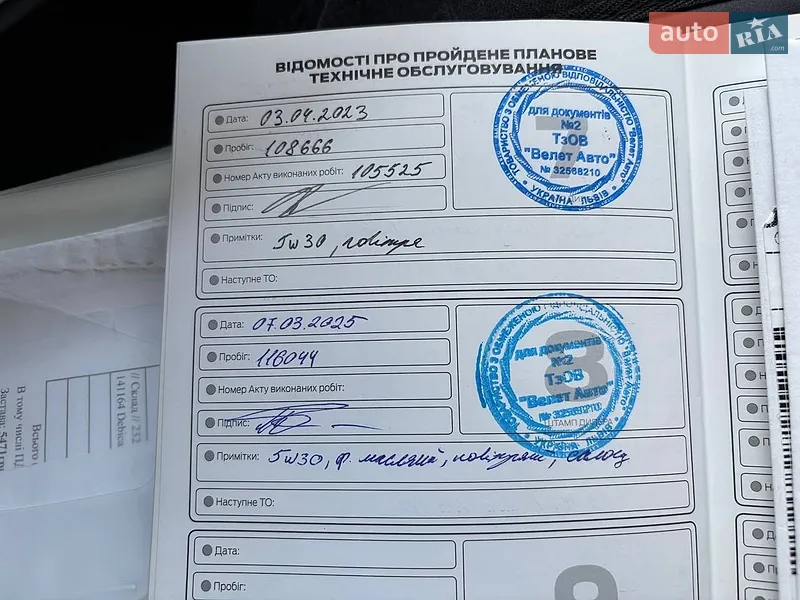 auto RIA .com
ВІДОМОСТІ ПРО ПРОЙДЕНЕ ПЛАНОВЕ
ТЕХНІЧНЕ ОБСЛУГОВУВАННЯ
Дата: 03.04.2023
Пробіг: 108666
Номер Акту виконаних робіт: 105525
Підпис:
Примітки: 5w30,
Наступне ТО:
7
ТОВАРИСТВО З ОБМЕЖЕНОЮ ВІДПОВІДАЛЬНІСТЮ "Велет Авто"
для документів
№2
ТзОВ
"Велет Авто"
№ 32568210
УКРАЇНА ЛЬВІВ
Дата: 07.03.2025
Пробіг: 116044
Номер Акту виконаних робіт:
Підпис:
Примітки: 5w30, ф. масляний,
Наступне ТО:
8
для документів
№2
ТзОВ
"Велет Авто"
№ 32568210
ШТАМП ДИЛЕРА
УКРАЇНА ЛЬВІВ
Дата:
Пробіг:
9
// Склад // 232
141164 Debica
Всього
В тому числі
Застава: 5471грн